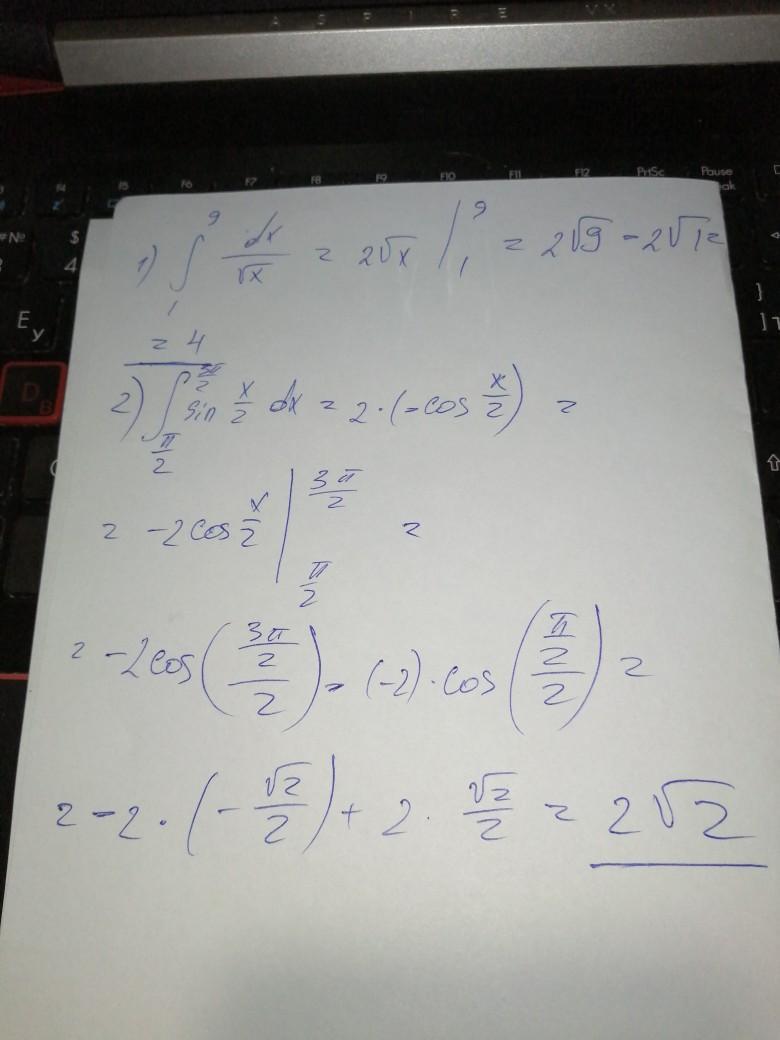 ASPIRE VX
F4 F5 F6 F7 F8 F9 F10 F11 F12 PrtSc Pause
1) ∫₁⁹ dx/√x = 2√x |₁⁹ = 2√9 - 2√1 =
= 4
2) ∫_{π/2}^{3π/2} sin x/2 dx = 2·(-cos x/2) =
= -2cos x/2 |_{π/2}^{3π/2} =
= -2cos((3π/2)/2) - (-2)·cos((π/2)/2) =
= -2·(-√2/2) + 2·√2/2 = 2√2